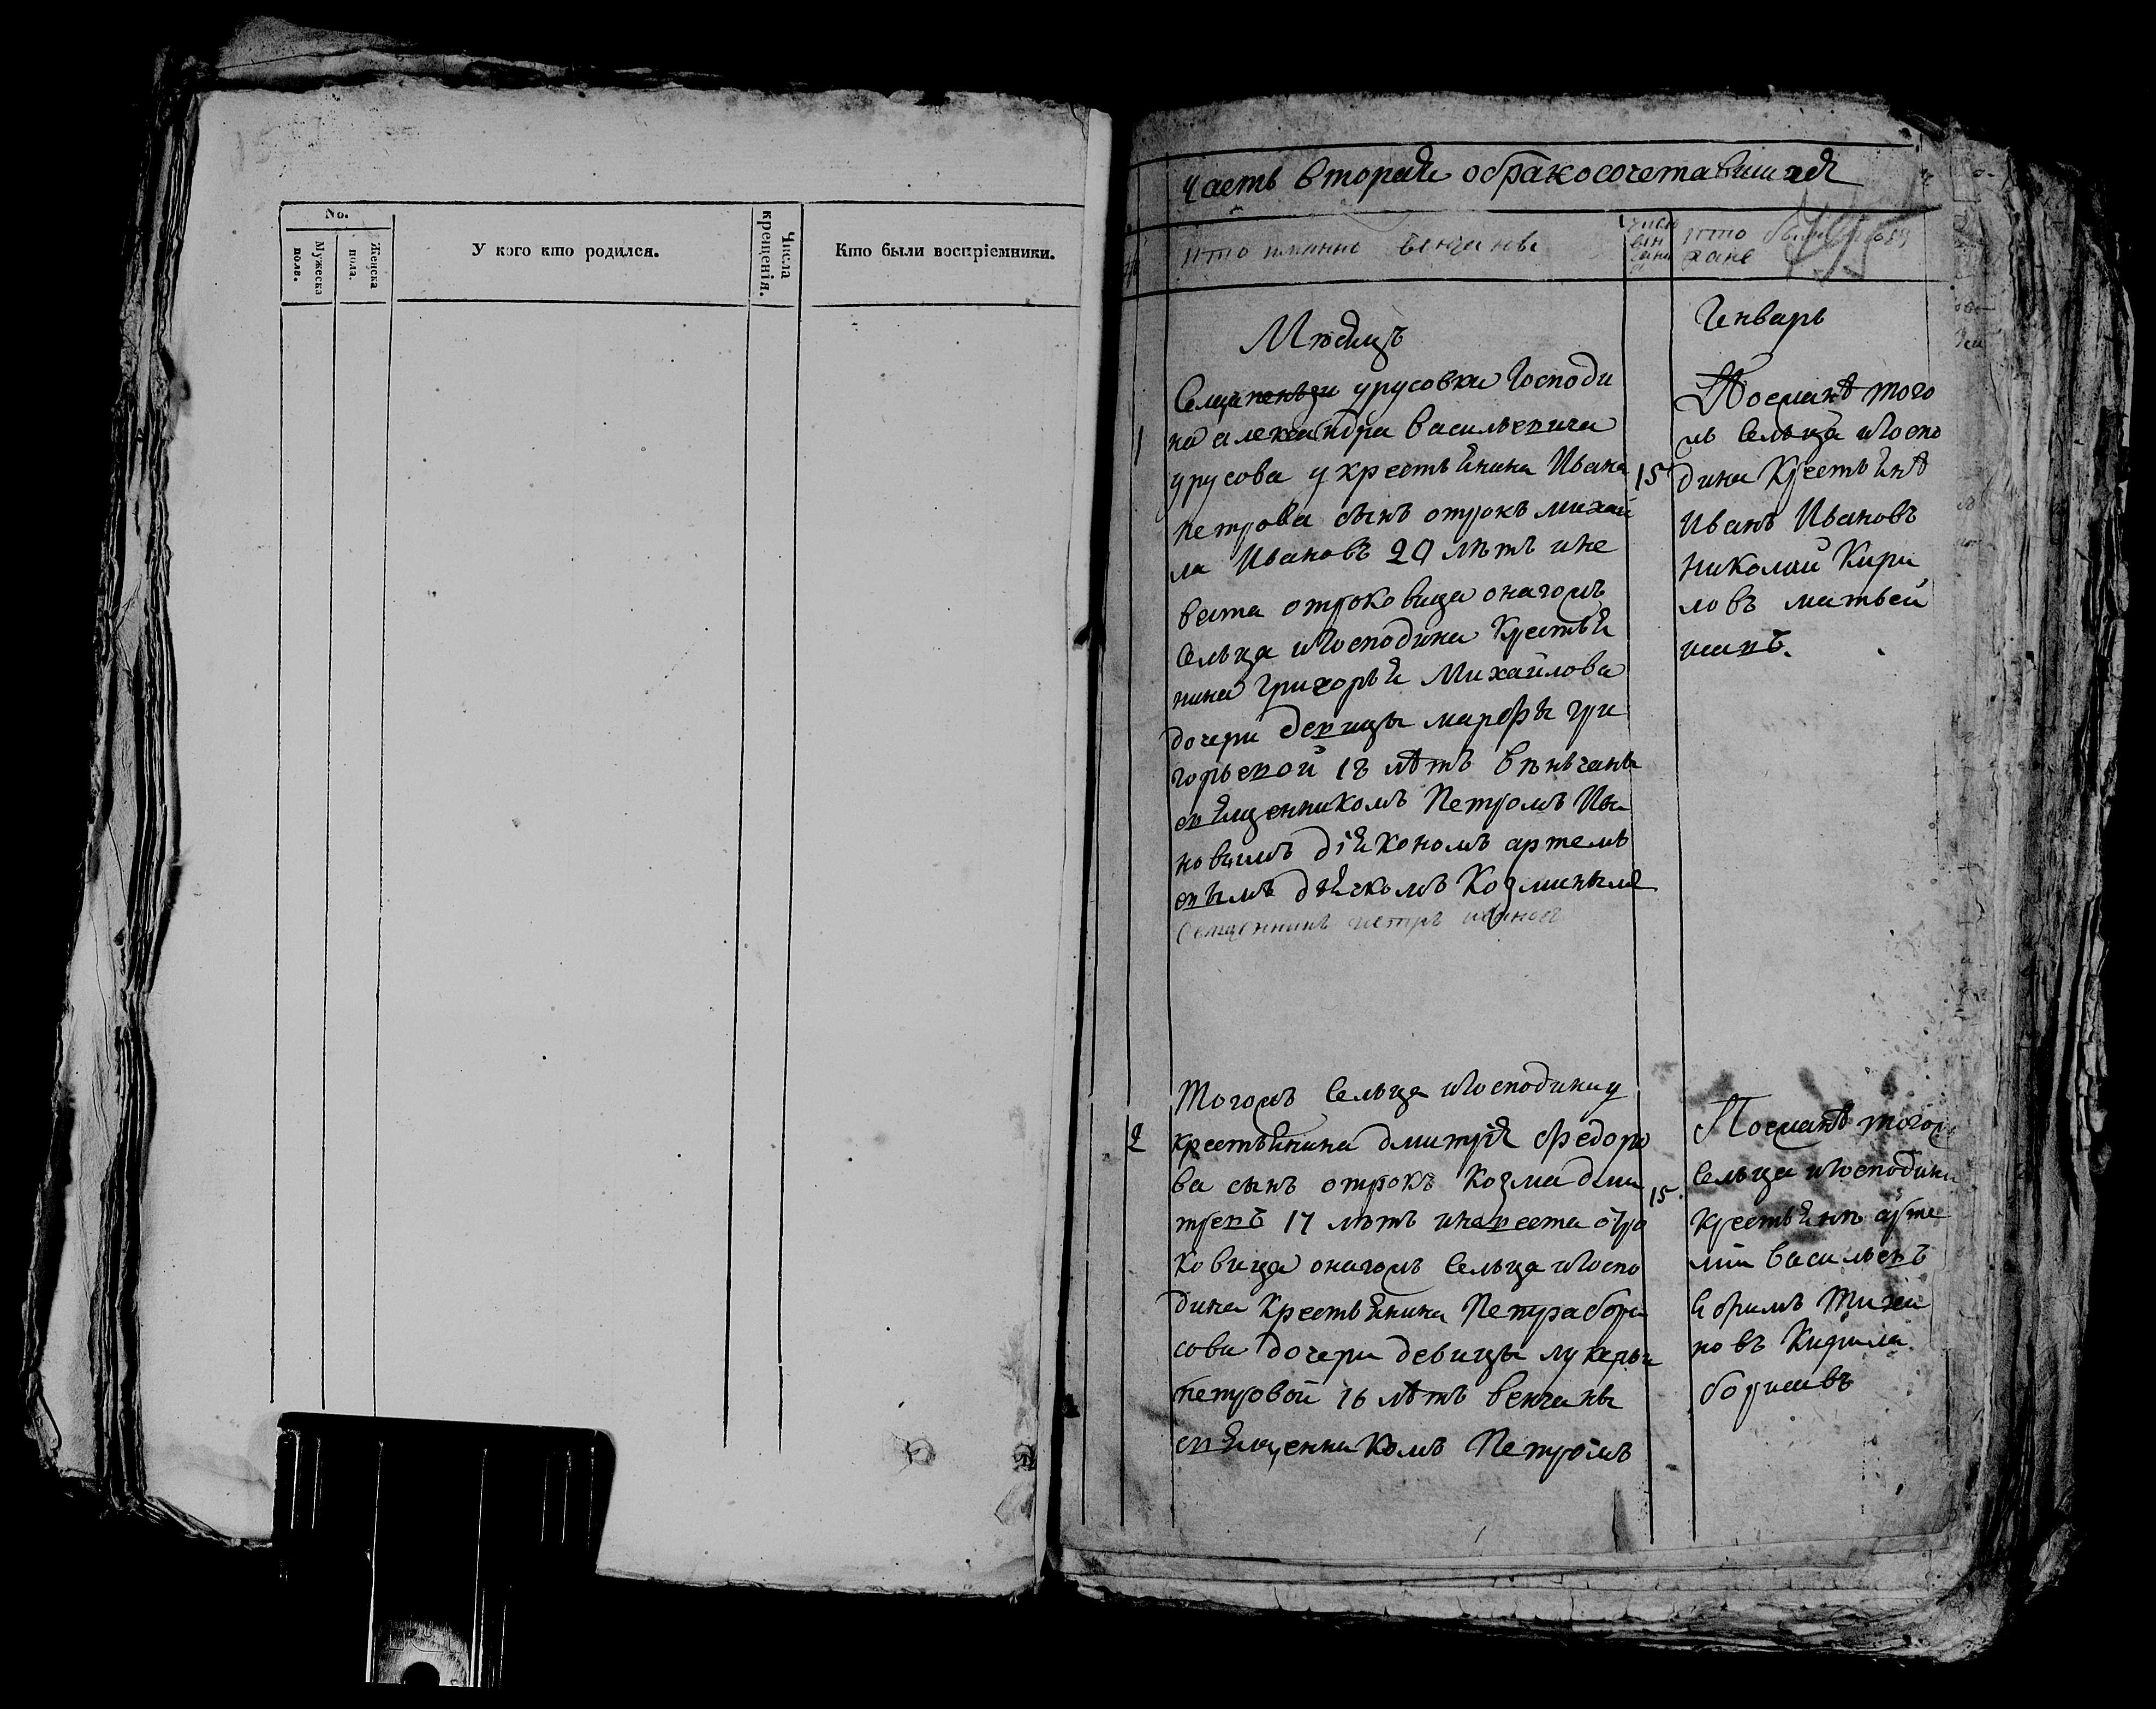 No.
Мужеска пола.
Женска пола.
У кого кто родился.
Числа крещенія.
Кто были воспріемники.
часть вторая обракосочетавшихся
кто имянно венчаны
число вен чани
кто были
Месяцъ
Генварь
1
Селца урусовки Господи
на александра васильевича
урусова у крестьянина Ивана
петрова сынъ отрокъ михаи
ла Ивановъ 20 лѣтъ и не
веста отроковица онагожъ
селца и Господина Крестья
нина Григорья Михайлова
дочери девицы марфы гри
горьевой 18 лѣтъ венчаны
священникомъ Петромъ Ива
новымъ діякономъ артемь
евымъ дьячкомъ Козминымъ
священникъ петръ ивановъ
15
Поежанѣ того
жъ селца и Госпо
дина Крестьянѣ
Иванъ Ивановъ
николаи Кири
ловъ матвей
2
Тогожъ селца и Господина у
крестьянина дмитрія Федоро
ва сынъ отрокъ Козма дми
тревъ 17 лѣтъ и невеста отро
ковица онагожъ селца и Госпо
дина Крестьянина Петра бори
сова дочери девицы лукерьи
петровой 16 лѣтъ венчаны
священникомъ Петромъ
15
Поежанѣ тогожъ
селца и Господина
крестьянѣ арте
мiи васильевъ
Кирила
борисовъ